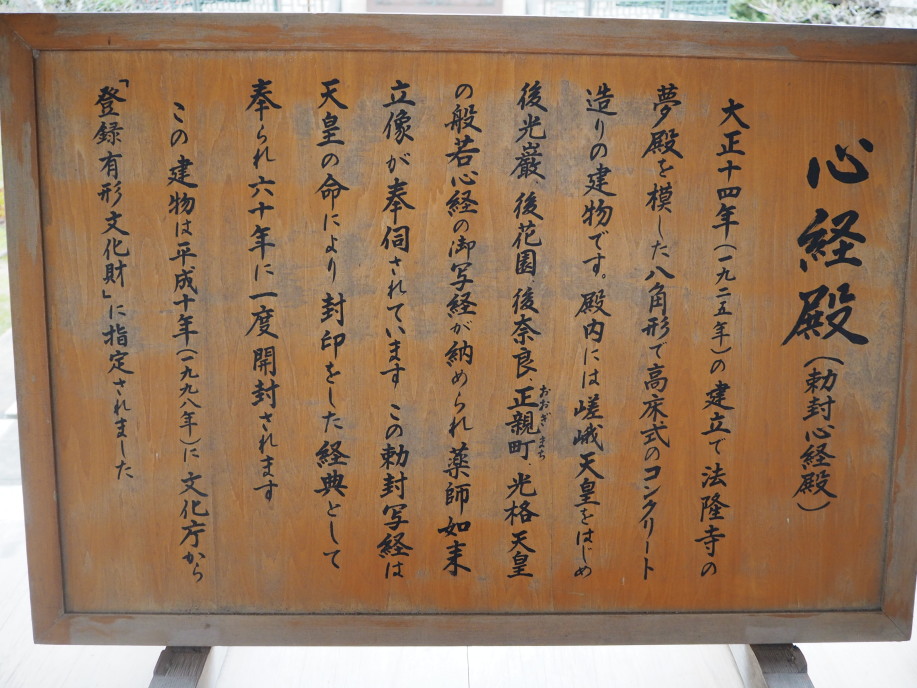 心経殿(勅封心経殿)
大正十四年(一九二五年)の建立で法隆寺の
夢殿を模した八角形で高床式のコンクリート
造りの建物です。殿内には嵯峨天皇をはじめ
後光巌、後花園、後奈良、正親町、光格天皇
おおぎまち
の般若心経の御写経が納められ薬師如来
立像が奉伺されています この勅封写経は
天皇の命により封印をした経典として
奉られ六十年に一度開封されます
この建物は平成十年(一九九八年)に文化庁から
「登録有形文化財」に指定されました